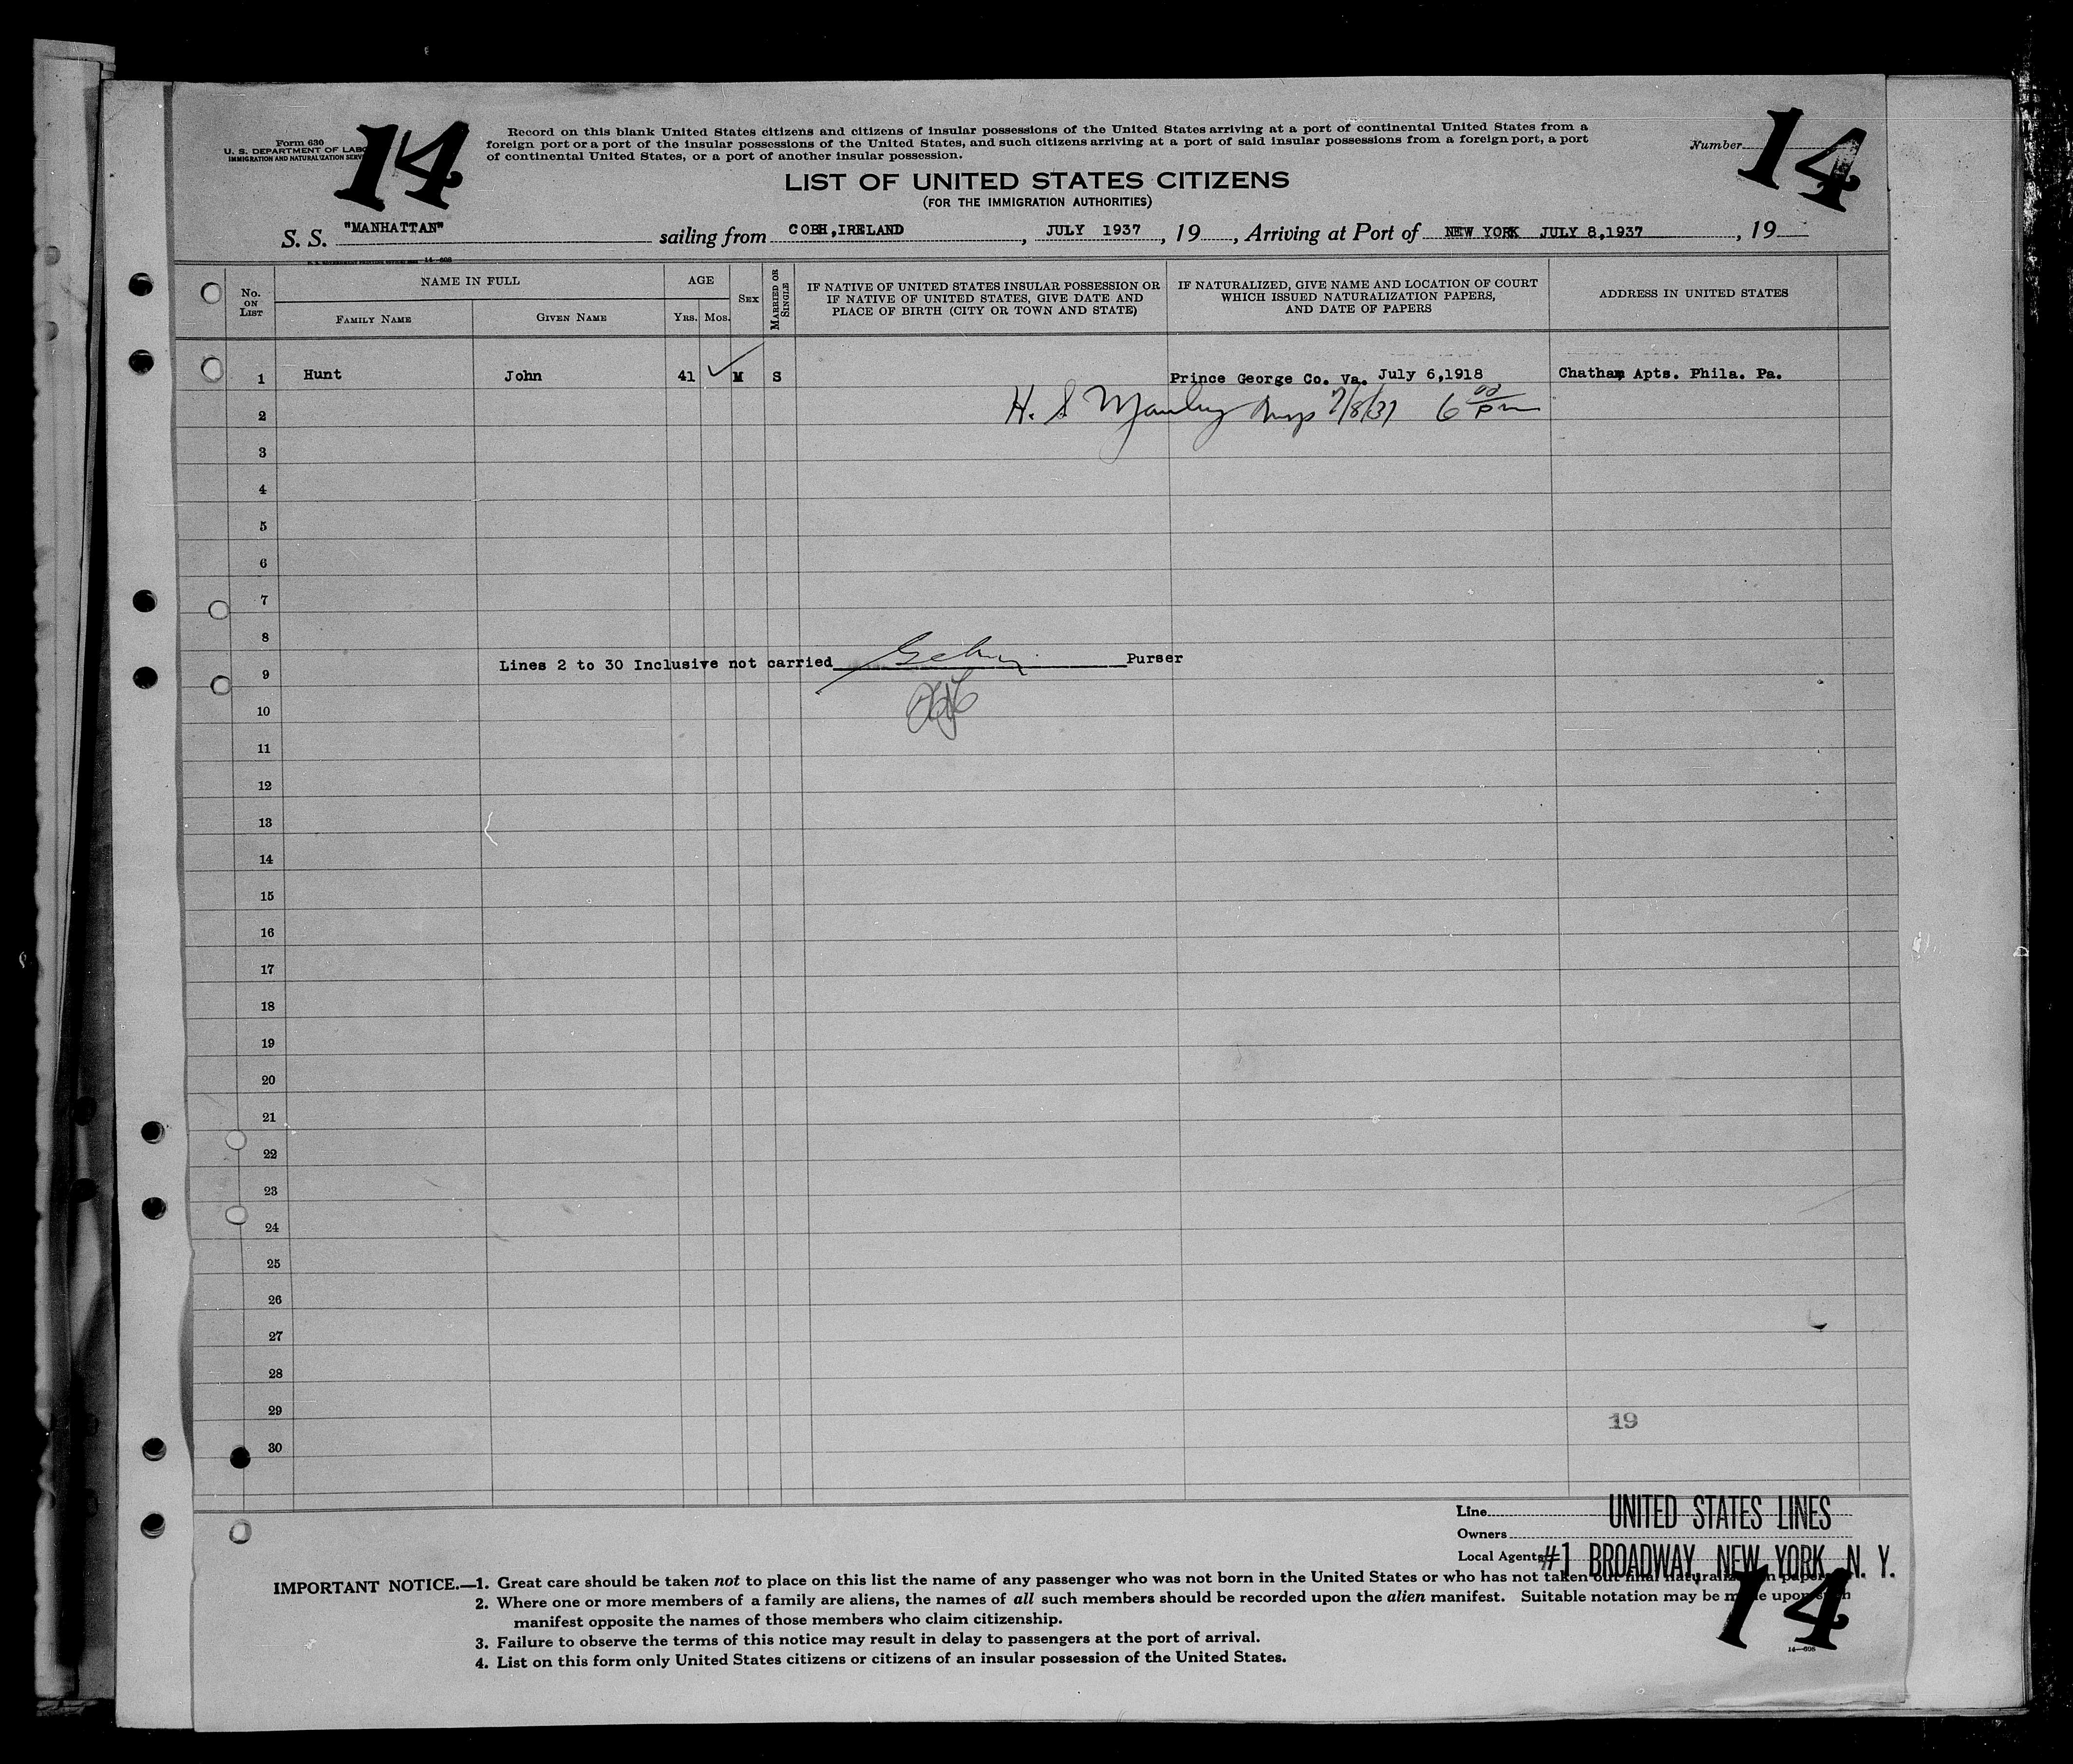 Form 630
U. S. DEPARTMENT OF
IMMIGRATION AND NATURALIZATION
14
Record on this blank United States citizens and citizens of insular possessions of the United States arriving at a port of continental United States from a
foreign port or a port of the insular possessions of the United States, and such citizens arriving at a port of said insular possessions from a foreign port, a port
of continental United States, or a port of another insular possession.
Number
14
LIST OF UNITED STATES CITIZENS
(FOR THE IMMIGRATION AUTHORITIES)
S. S. "MANHATTAN" sailing from COBH,IRELAND, JULY 1937, 19, Arriving at Port of NEW YORK JULY 8,1937, 19
14-698
No. ON LIST
NAME IN FULL
FAMILY NAME
GIVEN NAME
AGE
YRS. MOS.
SEX
MARRIED OR SINGLE
IF NATIVE OF UNITED STATES INSULAR POSSESSION OR
IF NATIVE OF UNITED STATES, GIVE DATE AND
PLACE OF BIRTH (CITY OR TOWN AND STATE)
IF NATURALIZED, GIVE NAME AND LOCATION OF COURT
WHICH ISSUED NATURALIZATION PAPERS,
AND DATE OF PAPERS
ADDRESS IN UNITED STATES
1 Hunt John 41 M S Prince George Co. Va. July 6,1918 Chatham Apts. Phila. Pa.
2 H. S 7/8/37 6 00 pm
3
4
5
6
7
8
Lines 2 to 30 Inclusive not carried Purser
9
10
11
12
13
14
15
16
17
18
19
20
21
22
23
24
25
26
27
28
29 19
30
Line UNITED STATES LINES
Owners
Local Agents #1 BROADWAY, NEW YORK, N. Y.
IMPORTANT NOTICE.—1. Great care should be taken not to place on this list the name of any passenger who was not born in the United States or who has not taken out final
2. Where one or more members of a family are aliens, the names of all such members should be recorded upon the alien manifest. Suitable notation may be made upon
manifest opposite the names of those members who claim citizenship.
3. Failure to observe the terms of this notice may result in delay to passengers at the port of arrival.
4. List on this form only United States citizens or citizens of an insular possession of the United States.
14
14—698